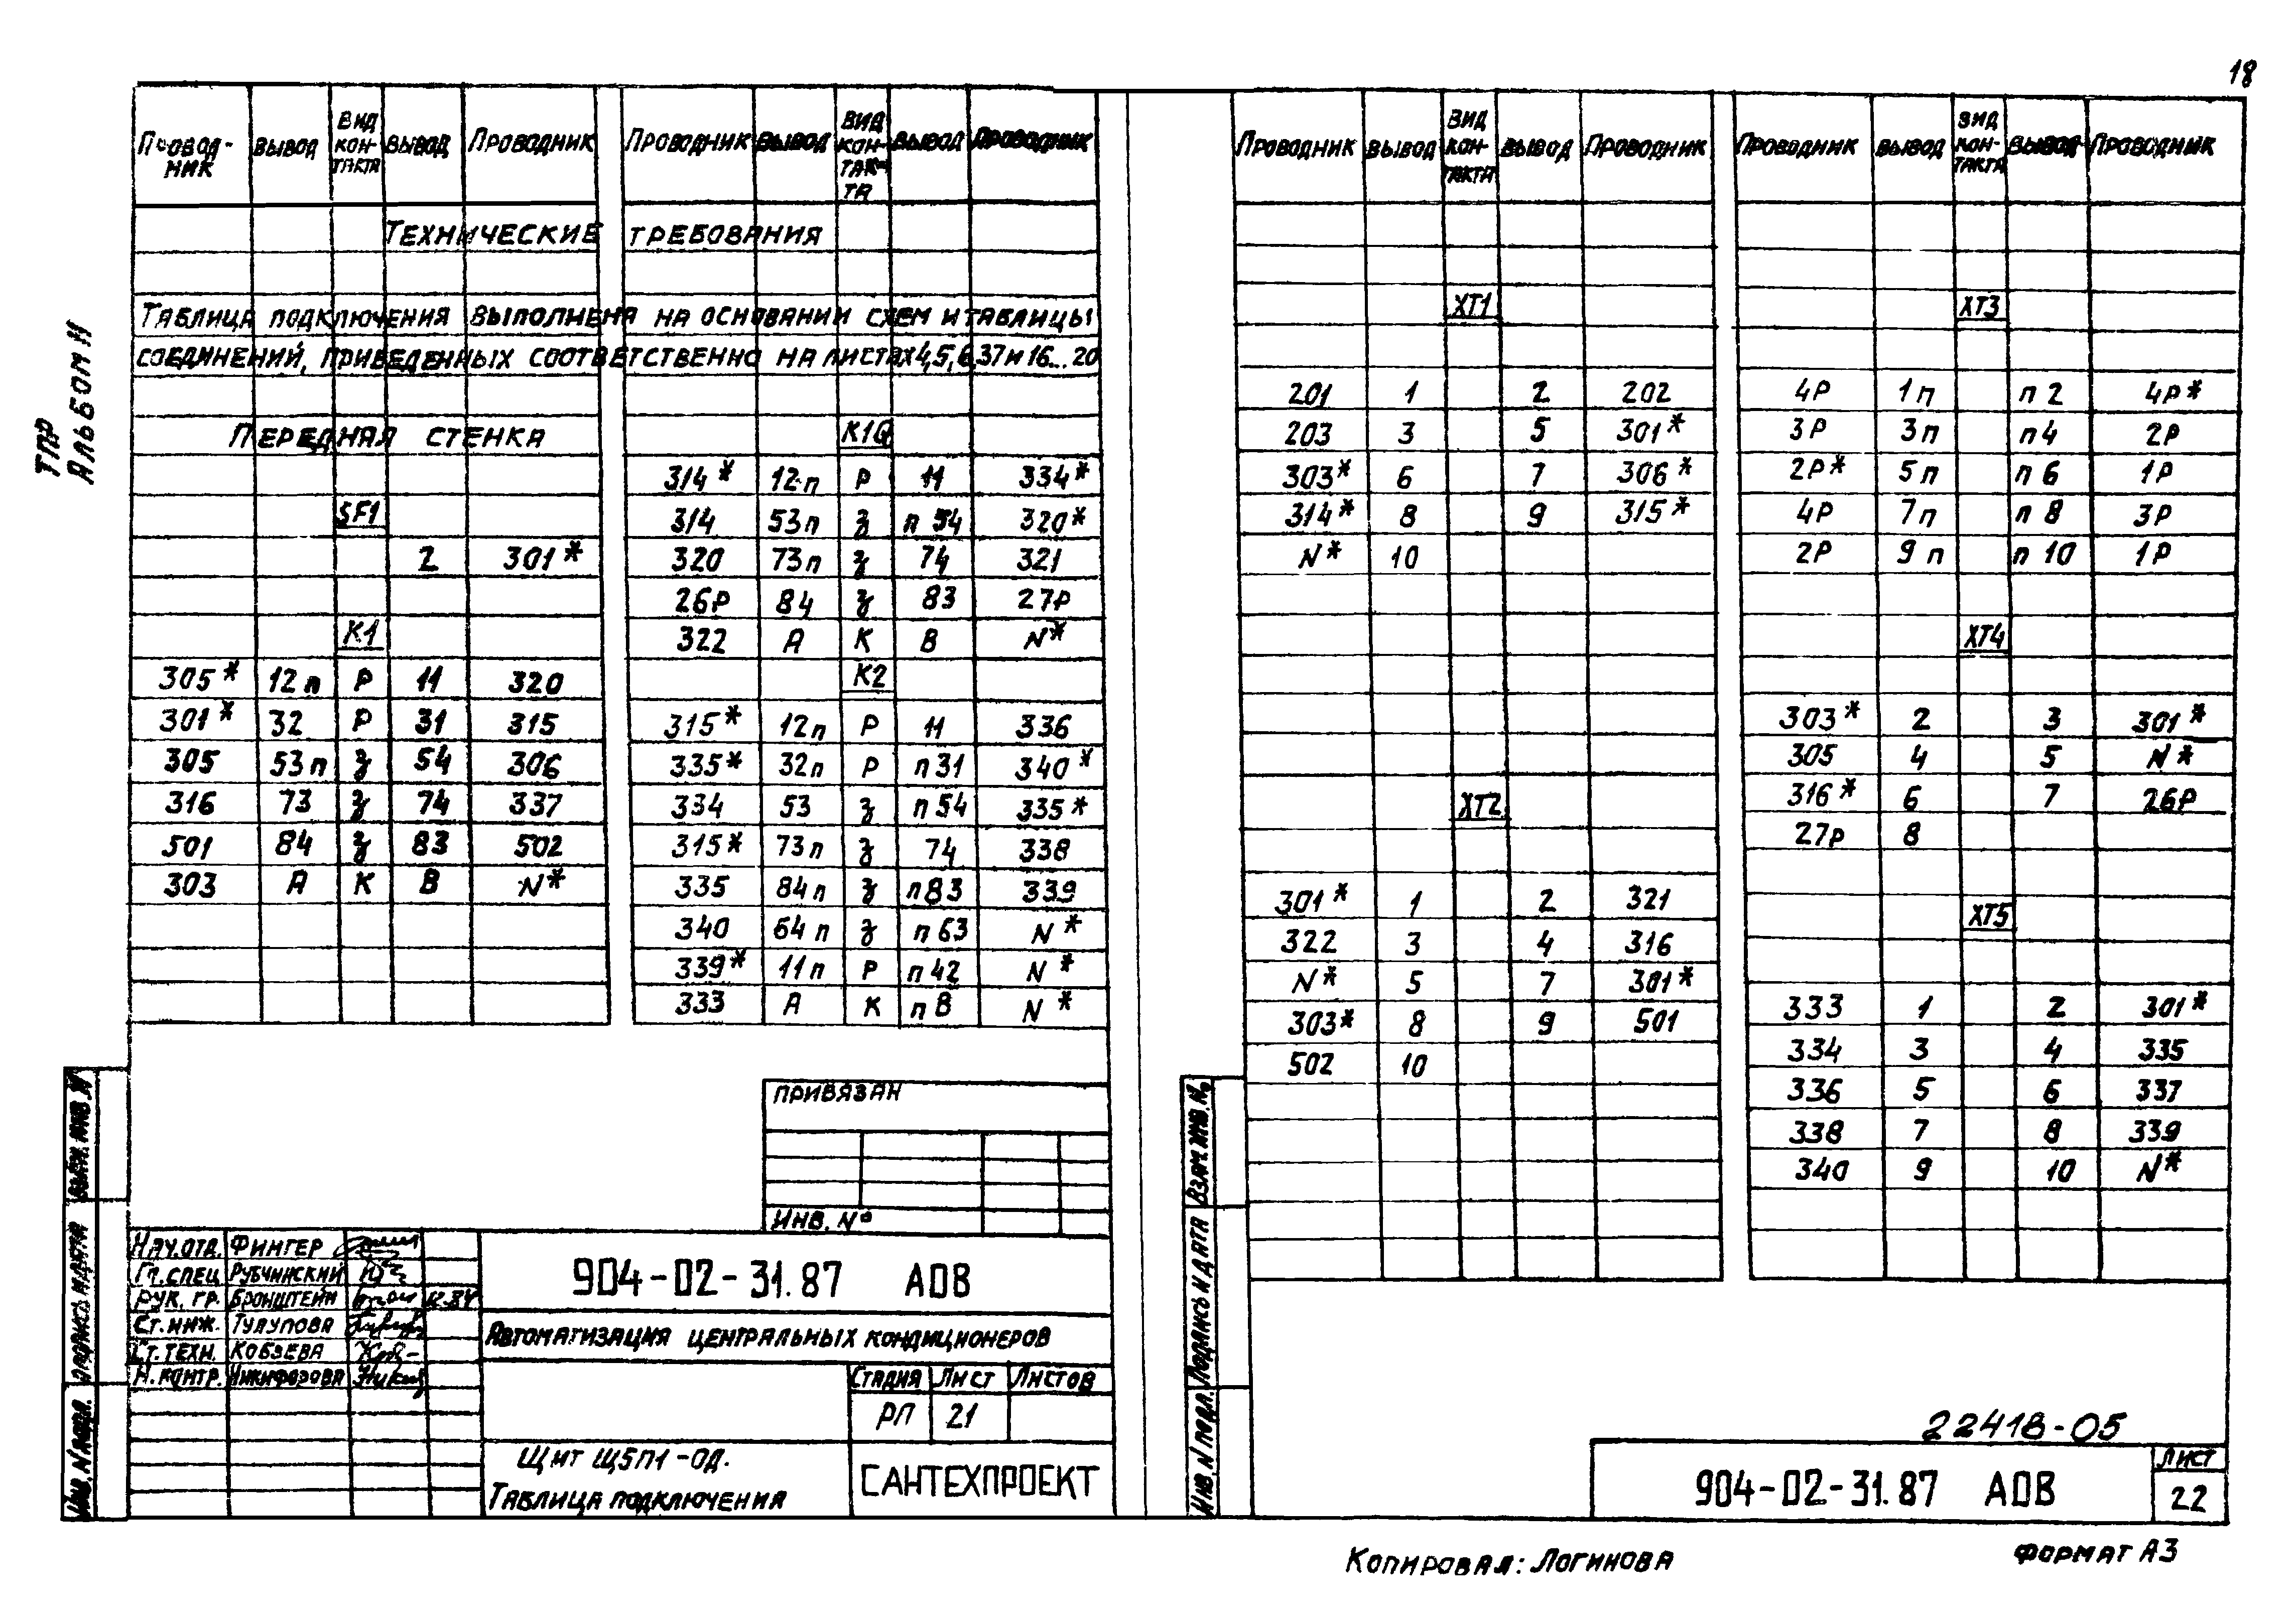 18
ТПР
Альбом II
Проводник Вывод Вид контакта Вывод Проводник
Технические требования
Таблица подключения выполнена на основании схем и таблицы
соединений, приведенных соответственно на листах 4,5,6,37 и 16...20
Передняя стенка
SF1
2 301*
К1
305* 12п Р 11 320
301* 32 Р 31 315
305 53п З 54 306
316 73 З 74 337
501 84 З 83 502
303 А К В N*
Проводник Вывод Вид контакта Вывод Проводник
К1Q
314* 12п Р 11 334*
314 53п З п 54 320*
320 73п З 74 321
26Р 84 З 83 27Р
322 А К В N*
К2
315* 12п Р 11 336
335* 32п Р п31 340*
334 53 З п54 335*
315* 73п З 74 338
335 84п З п83 339
340 64п З п63 N*
339* 11п Р п42 N*
333 А К п В N*
Привязан
Инв. №
Нач.отд. Фингер
Гл.спец Рубчинский
Рук. гр. Бронштейн
Ст.инж. Тулупова
Ст.техн. Кобзева
Н.контр. Никифорова
904-02-31.87 АОВ
Автоматизация центральных кондиционеров
Стадия Лист Листов
РП 21
Щит Щ5П1-ОД.
Таблица подключения
САНТЕХПРОЕКТ
Взам. инв. №
Подпись и дата
Инв. № подл.
Проводник Вывод Вид контакта Вывод Проводник
ХТ1
201 1 2 202
203 3 5 301*
303* 6 7 306*
314* 8 9 315*
N* 10
ХТ2
301* 1 2 321
322 3 4 316
N* 5 7 301*
303* 8 9 501
502 10
Проводник Вывод Вид контакта Вывод Проводник
ХТ3
4Р 1п п 2 4Р*
3Р 3п п4 2Р
2Р* 5п п 6 1Р
4Р 7п п 8 3Р
2Р 9п п 10 1Р
ХТ4
303* 2 3 301*
305 4 5 N*
316* 6 7 26Р
27Р 8
ХТ5
333 1 2 301*
334 3 4 335
336 5 6 337
338 7 8 339
340 9 10 N*
Взам. инв. №
Подпись и дата
Инв. № подл.
22418-05
904-02-31.87 АОВ
Лист
22
Копировал: Логинова
Формат А3